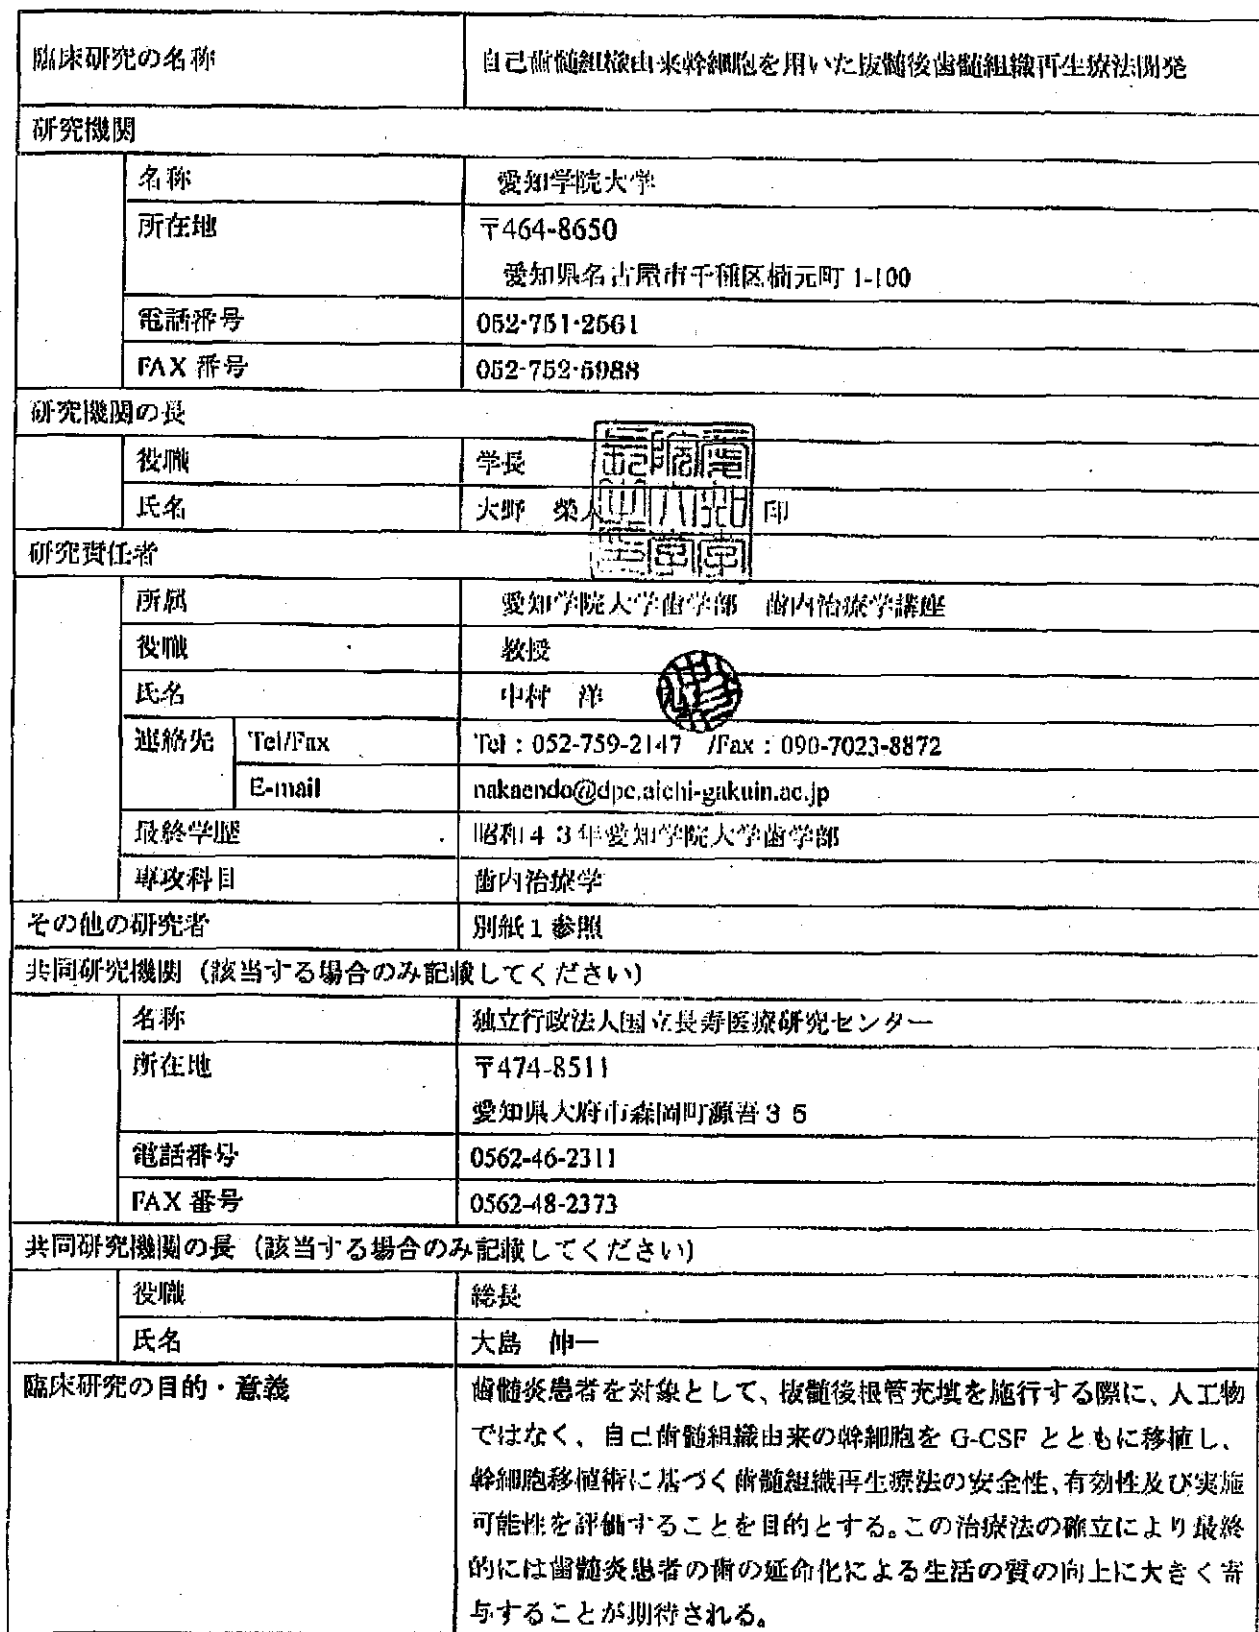 臨床研究の名称 自己歯髄組織由来幹細胞を用いた抜髄後歯髄組織再生療法開発
研究機関
名称 愛知学院大学
所在地 〒464-8650
愛知県名古屋市千種区楠元町 1-100
電話番号 052-751-2561
FAX 番号 052-752-5988
研究機関の長
役職 学長
氏名 大野 榮人 印
研究責任者
所属 愛知学院大学歯学部 歯内治療学講座
役職 教授
氏名 中村 洋
連絡先 Tel/Fax Tel : 052-759-2147 /Fax : 090-7023-8872
E-mail nakaendo@dpc.aichi-gakuin.ac.jp
最終学歴 昭和43年愛知学院大学歯学部
専攻科目 歯内治療学
その他の研究者 別紙1参照
共同研究機関（該当する場合のみ記載してください）
名称 独立行政法人国立長寿医療研究センター
所在地 〒474-8511
愛知県大府市森岡町源吾35
電話番号 0562-46-2311
FAX 番号 0562-48-2373
共同研究機関の長（該当する場合のみ記載してください）
役職 総長
氏名 大島 伸一
臨床研究の目的・意義 歯髄炎患者を対象として、抜髄後根管充填を施行する際に、人工物
ではなく、自己歯髄組織由来の幹細胞を G-CSF とともに移植し、
幹細胞移植術に基づく歯髄組織再生療法の安全性、有効性及び実施
可能性を評価することを目的とする。この治療法の確立により最終
的には歯髄炎患者の歯の延命化による生活の質の向上に大きく寄
与することが期待される。